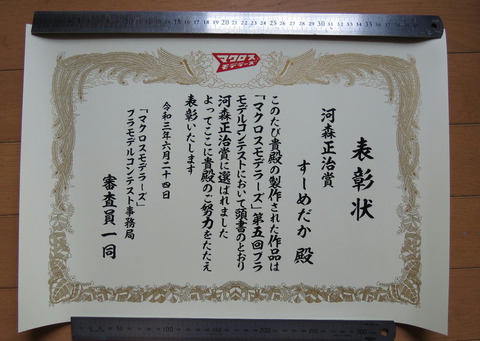 マクロス
モデラーズ
表彰状
河森正治賞
すしめだか 殿
このたび貴殿の製作された作品は
「マクロスモデラーズ」第五回プラ
モデルコンテストにおいて頭書のとおり
河森正治賞に選ばれました
よってここに貴殿のご努力をたたえ
表彰いたします
令和三年六月二十四日
「マクロスモデラーズ」
プラモデルコンテスト事務局
審査員一同